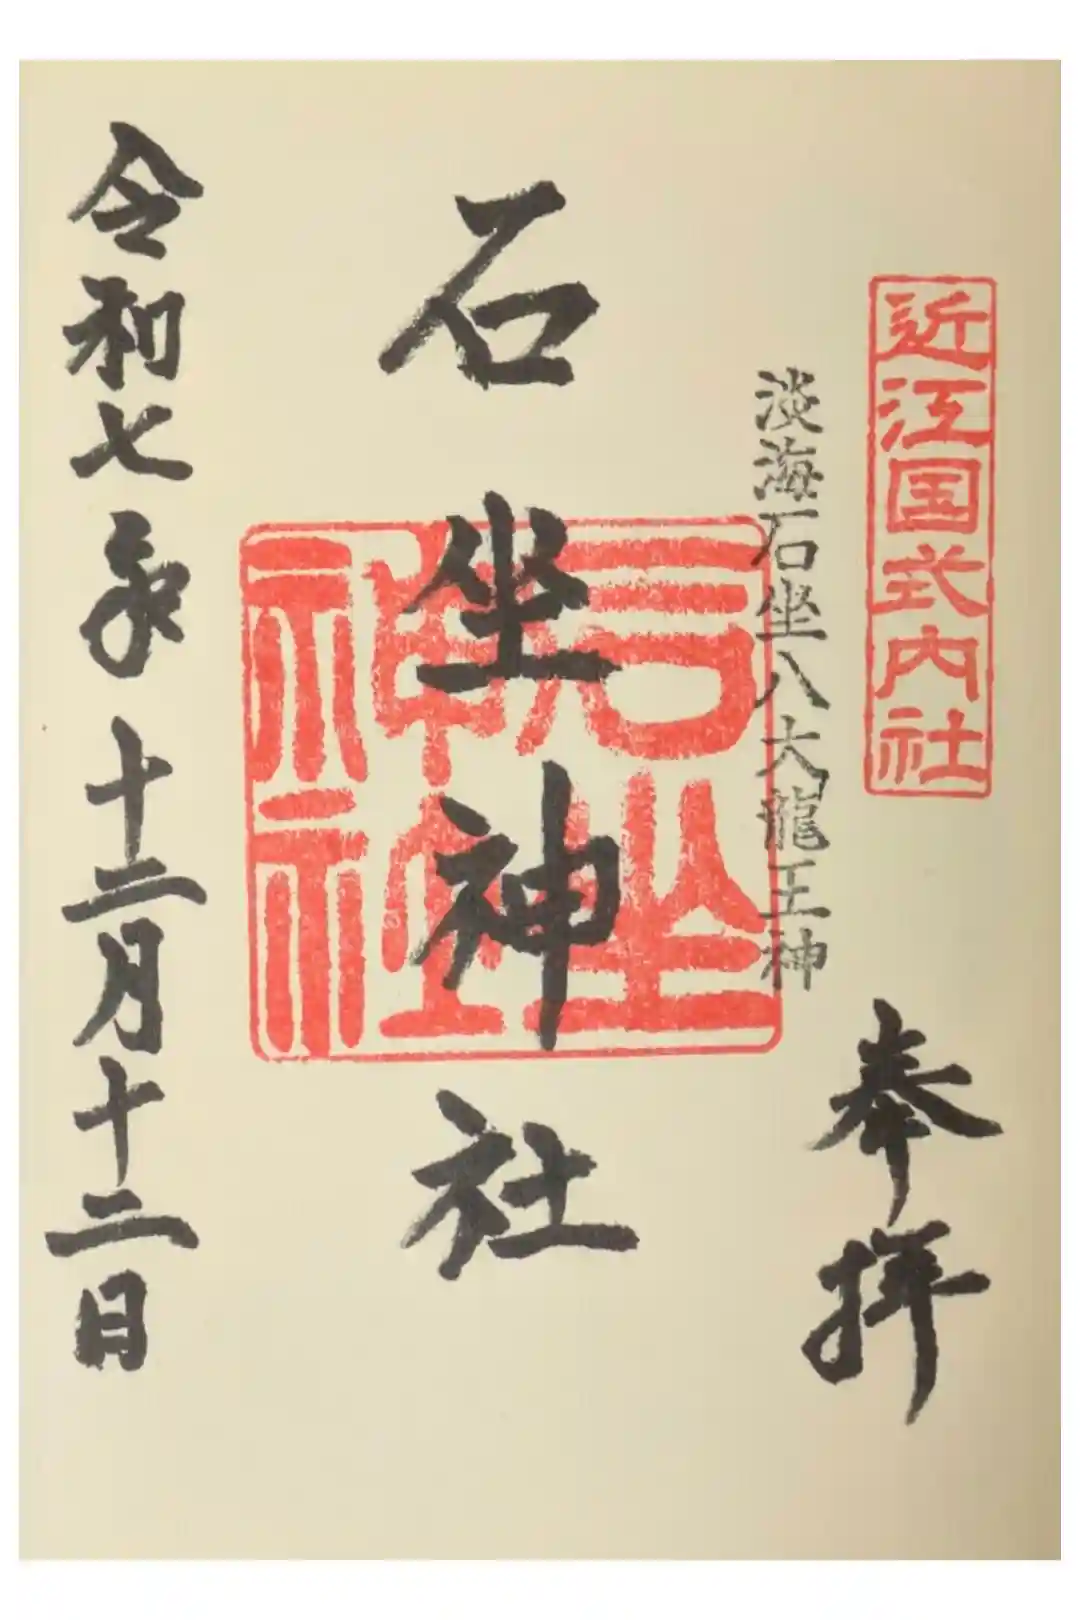 近江国式内社
奉拝
淡海石坐八大龍王神
石坐神社
石坐
神社
令和七年十二月十二日